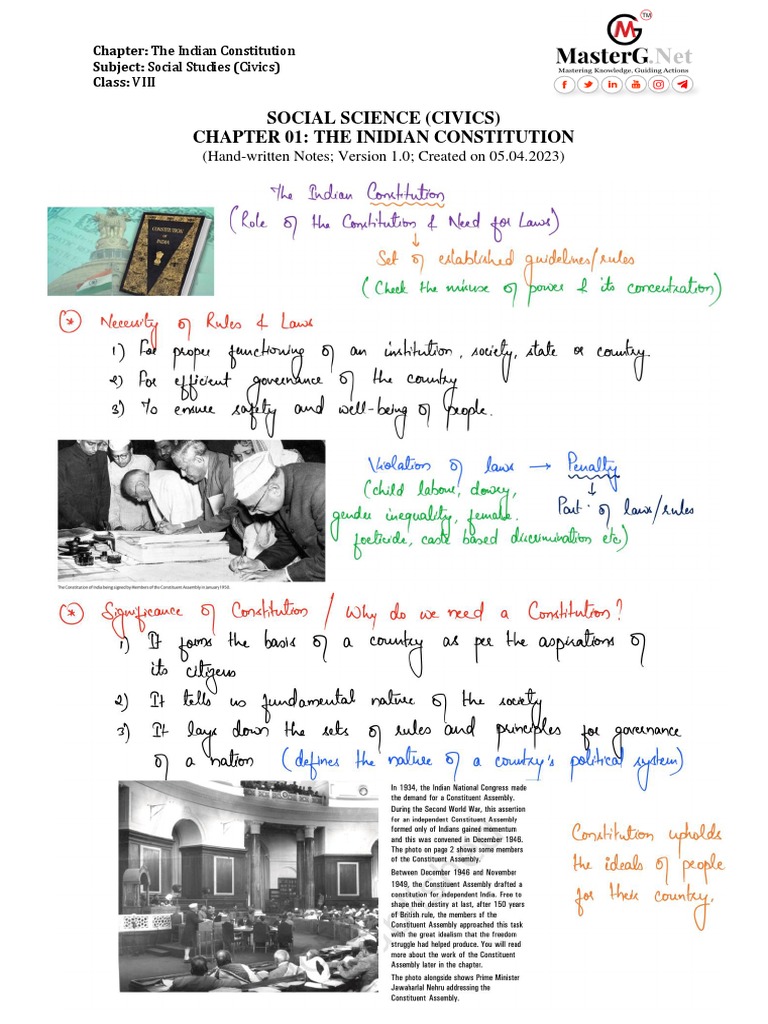 Chapter: The Indian Constitution
Subject: Social Studies (Civics)
Class: VIII
TM
MasterG.Net
Mastering Knowledge, Guiding Actions
SOCIAL SCIENCE (CIVICS)
CHAPTER 01: THE INIDIAN CONSTITUTION
(Hand-written Notes; Version 1.0; Created on 05.04.2023)
The Indian Constitution
(Role of the Constitution & Need for Laws)
CONSTITUTION
OF
INDIA
↓
Set of established guidelines/rules
(Check the misuse of power & its concentration)
Necessity of Rules & Laws
1) For proper functioning of an institution, society, state or country.
2) For efficient governance of the country
3) To ensure safety and well-being of people.
Violation of laws → Penalty
↓
Part of laws/rules
(child labour, dowry,
gender inequality, female
foeticide, caste based discrimination etc)
The Constitution of India being signed by Members of the Constituent Assembly in January 1950.
Significance of Constitution / Why do we need a Constitution?
1) It forms the basis of a country as per the aspirations of
its citizens
2) It tells us fundamental nature of the society
3) It lays down the sets of rules and principles for governance
of a nation (defines the nature of a country's political system)
In 1934, the Indian National Congress made
the demand for a Constituent Assembly.
During the Second World War, this assertion
for an independent Constituent Assembly
formed only of Indians gained momentum
and this was convened in December 1946.
The photo on page 2 shows some members
of the Constituent Assembly.
Between December 1946 and November
1949, the Constituent Assembly drafted a
constitution for independent India. Free to
shape their destiny at last, after 150 years
of British rule, the members of the
Constituent Assembly approached this task
with the great idealism that the freedom
struggle had helped produce. You will read
more about the work of the Constituent
Assembly later in the chapter.
The photo alongside shows Prime Minister
Jawaharlal Nehru addressing the
Constituent Assembly.
Constitution upholds
the ideals of people
for their country.